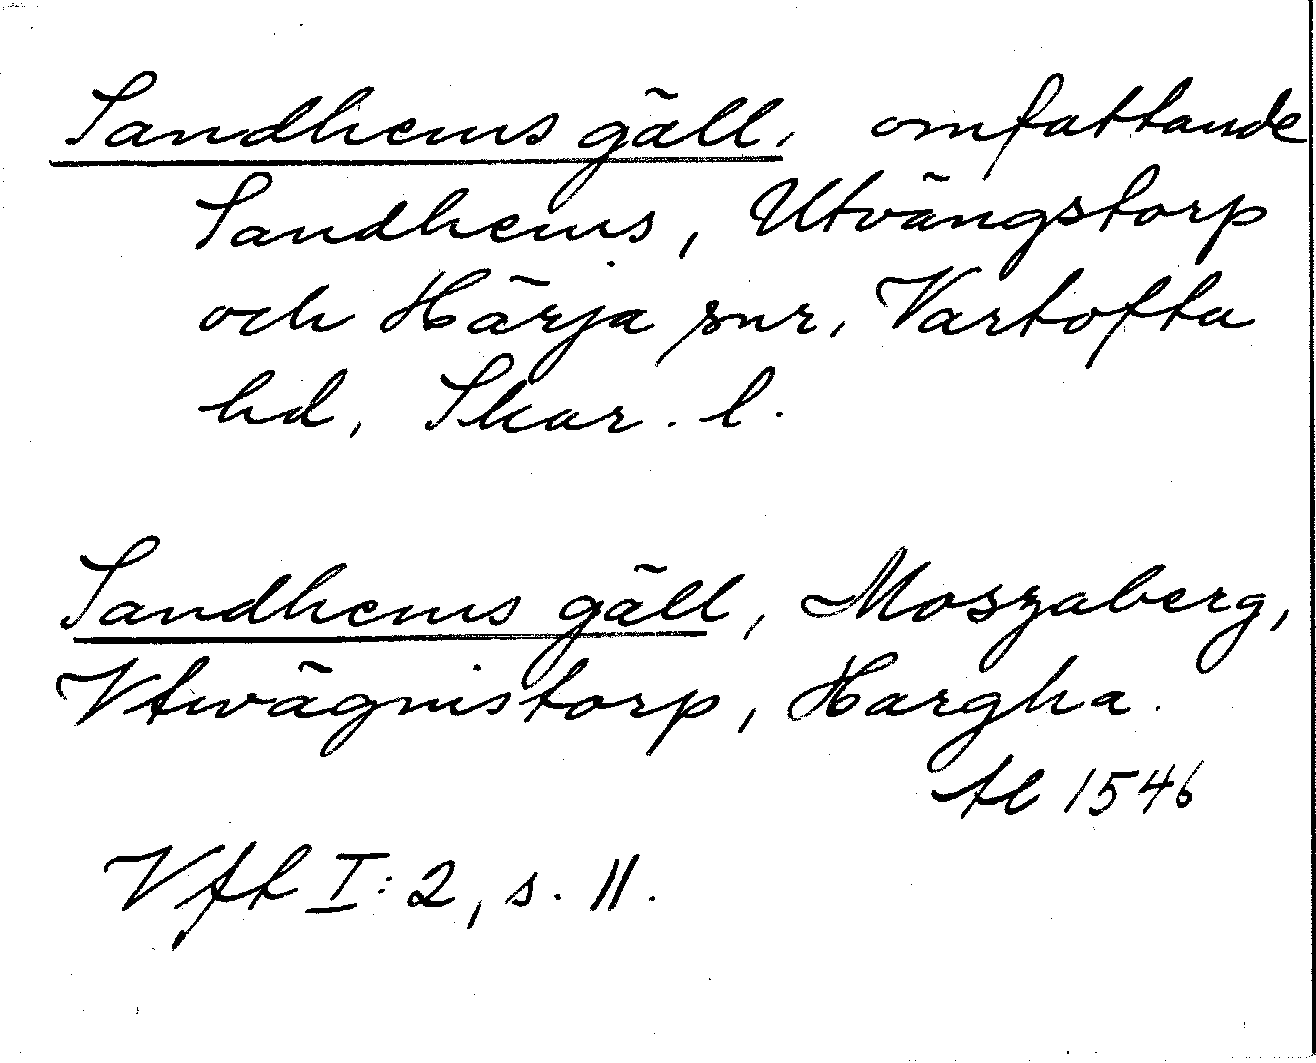 Sandhems gäll, omfattande
Sandhems, Utvängstorp
och Härja snr, Vartofta
hd, Skar. l.
Sandhems gäll, Moszaberg,
Vtwägnistorp, Hargha.
tl 1546
Vft I:2, s. 11.